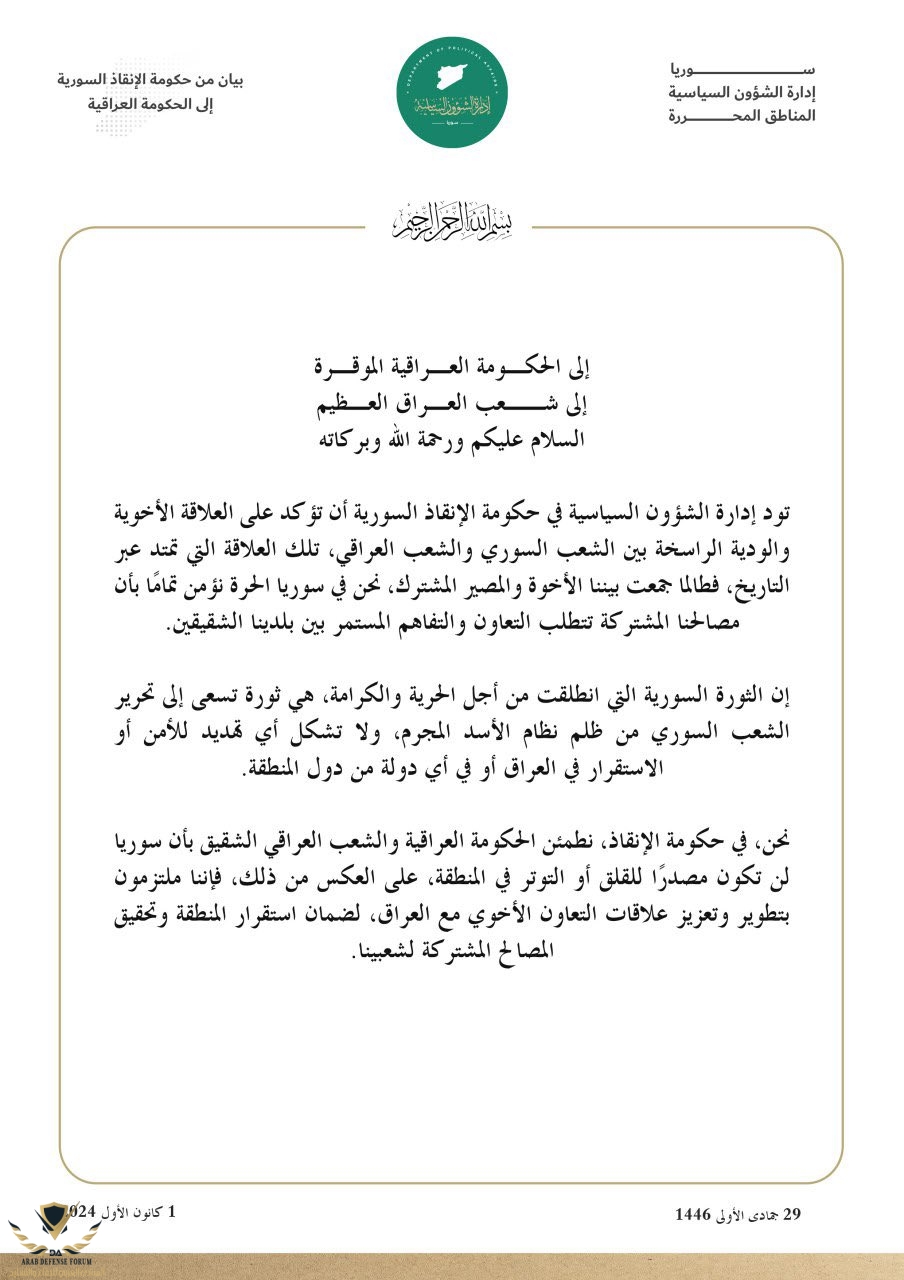 ســـــــــــــــوريا
إدارة الشؤون السياسية
المناطق المحـــــــررة
DEPARTMENT OF POLITICAL AFFAIRS
إدارة الشؤون السياسية
سوريا
بيان من حكومة الإنقاذ السورية
إلى الحكومة العراقية
بسم الله الرحمن الرحيم
إلى الحكـــومة العـــراقية الموقـــرة
إلى شـــــعب العـــراق العـــظيم
السلام عليكم ورحمة الله وبركاته
تود إدارة الشؤون السياسية في حكومة الإنقاذ السورية أن تؤكد على العلاقة الأخوية
والودية الراسخة بين الشعب السوري والشعب العراقي، تلك العلاقة التي تمتد عبر
التاريخ، فطالما جمعت بيننا الأخوة والمصير المشترك، نحن في سوريا الحرة نؤمن تمامًا بأن
مصالحنا المشتركة تتطلب التعاون والتفاهم المستمر بين بلدينا الشقيقين.
إن الثورة السورية التي انطلقت من أجل الحرية والكرامة، هي ثورة تسعى إلى تحرير
الشعب السوري من ظلم نظام الأسد المجرم، ولا تشكل أي تهديد للأمن أو
الاستقرار في العراق أو في أي دولة من دول المنطقة.
نحن، في حكومة الإنقاذ، نطمئن الحكومة العراقية والشعب العراقي الشقيق بأن سوريا
لن تكون مصدرًا للقلق أو التوتر في المنطقة، على العكس من ذلك، فإننا ملتزمون
بتطوير وتعزيز علاقات التعاون الأخوي مع العراق، لضمان استقرار المنطقة وتحقيق
المصالح المشتركة لشعبينا.
29 جمادى الأولى 1446
1 كانون الأول 024
DA
ARAB DEFENSE FORUM